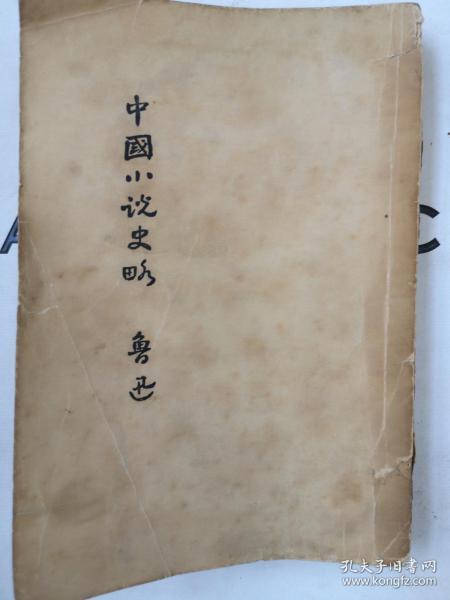 中國小说史略 魯迅
孔夫子旧书网
www.kongfz.com